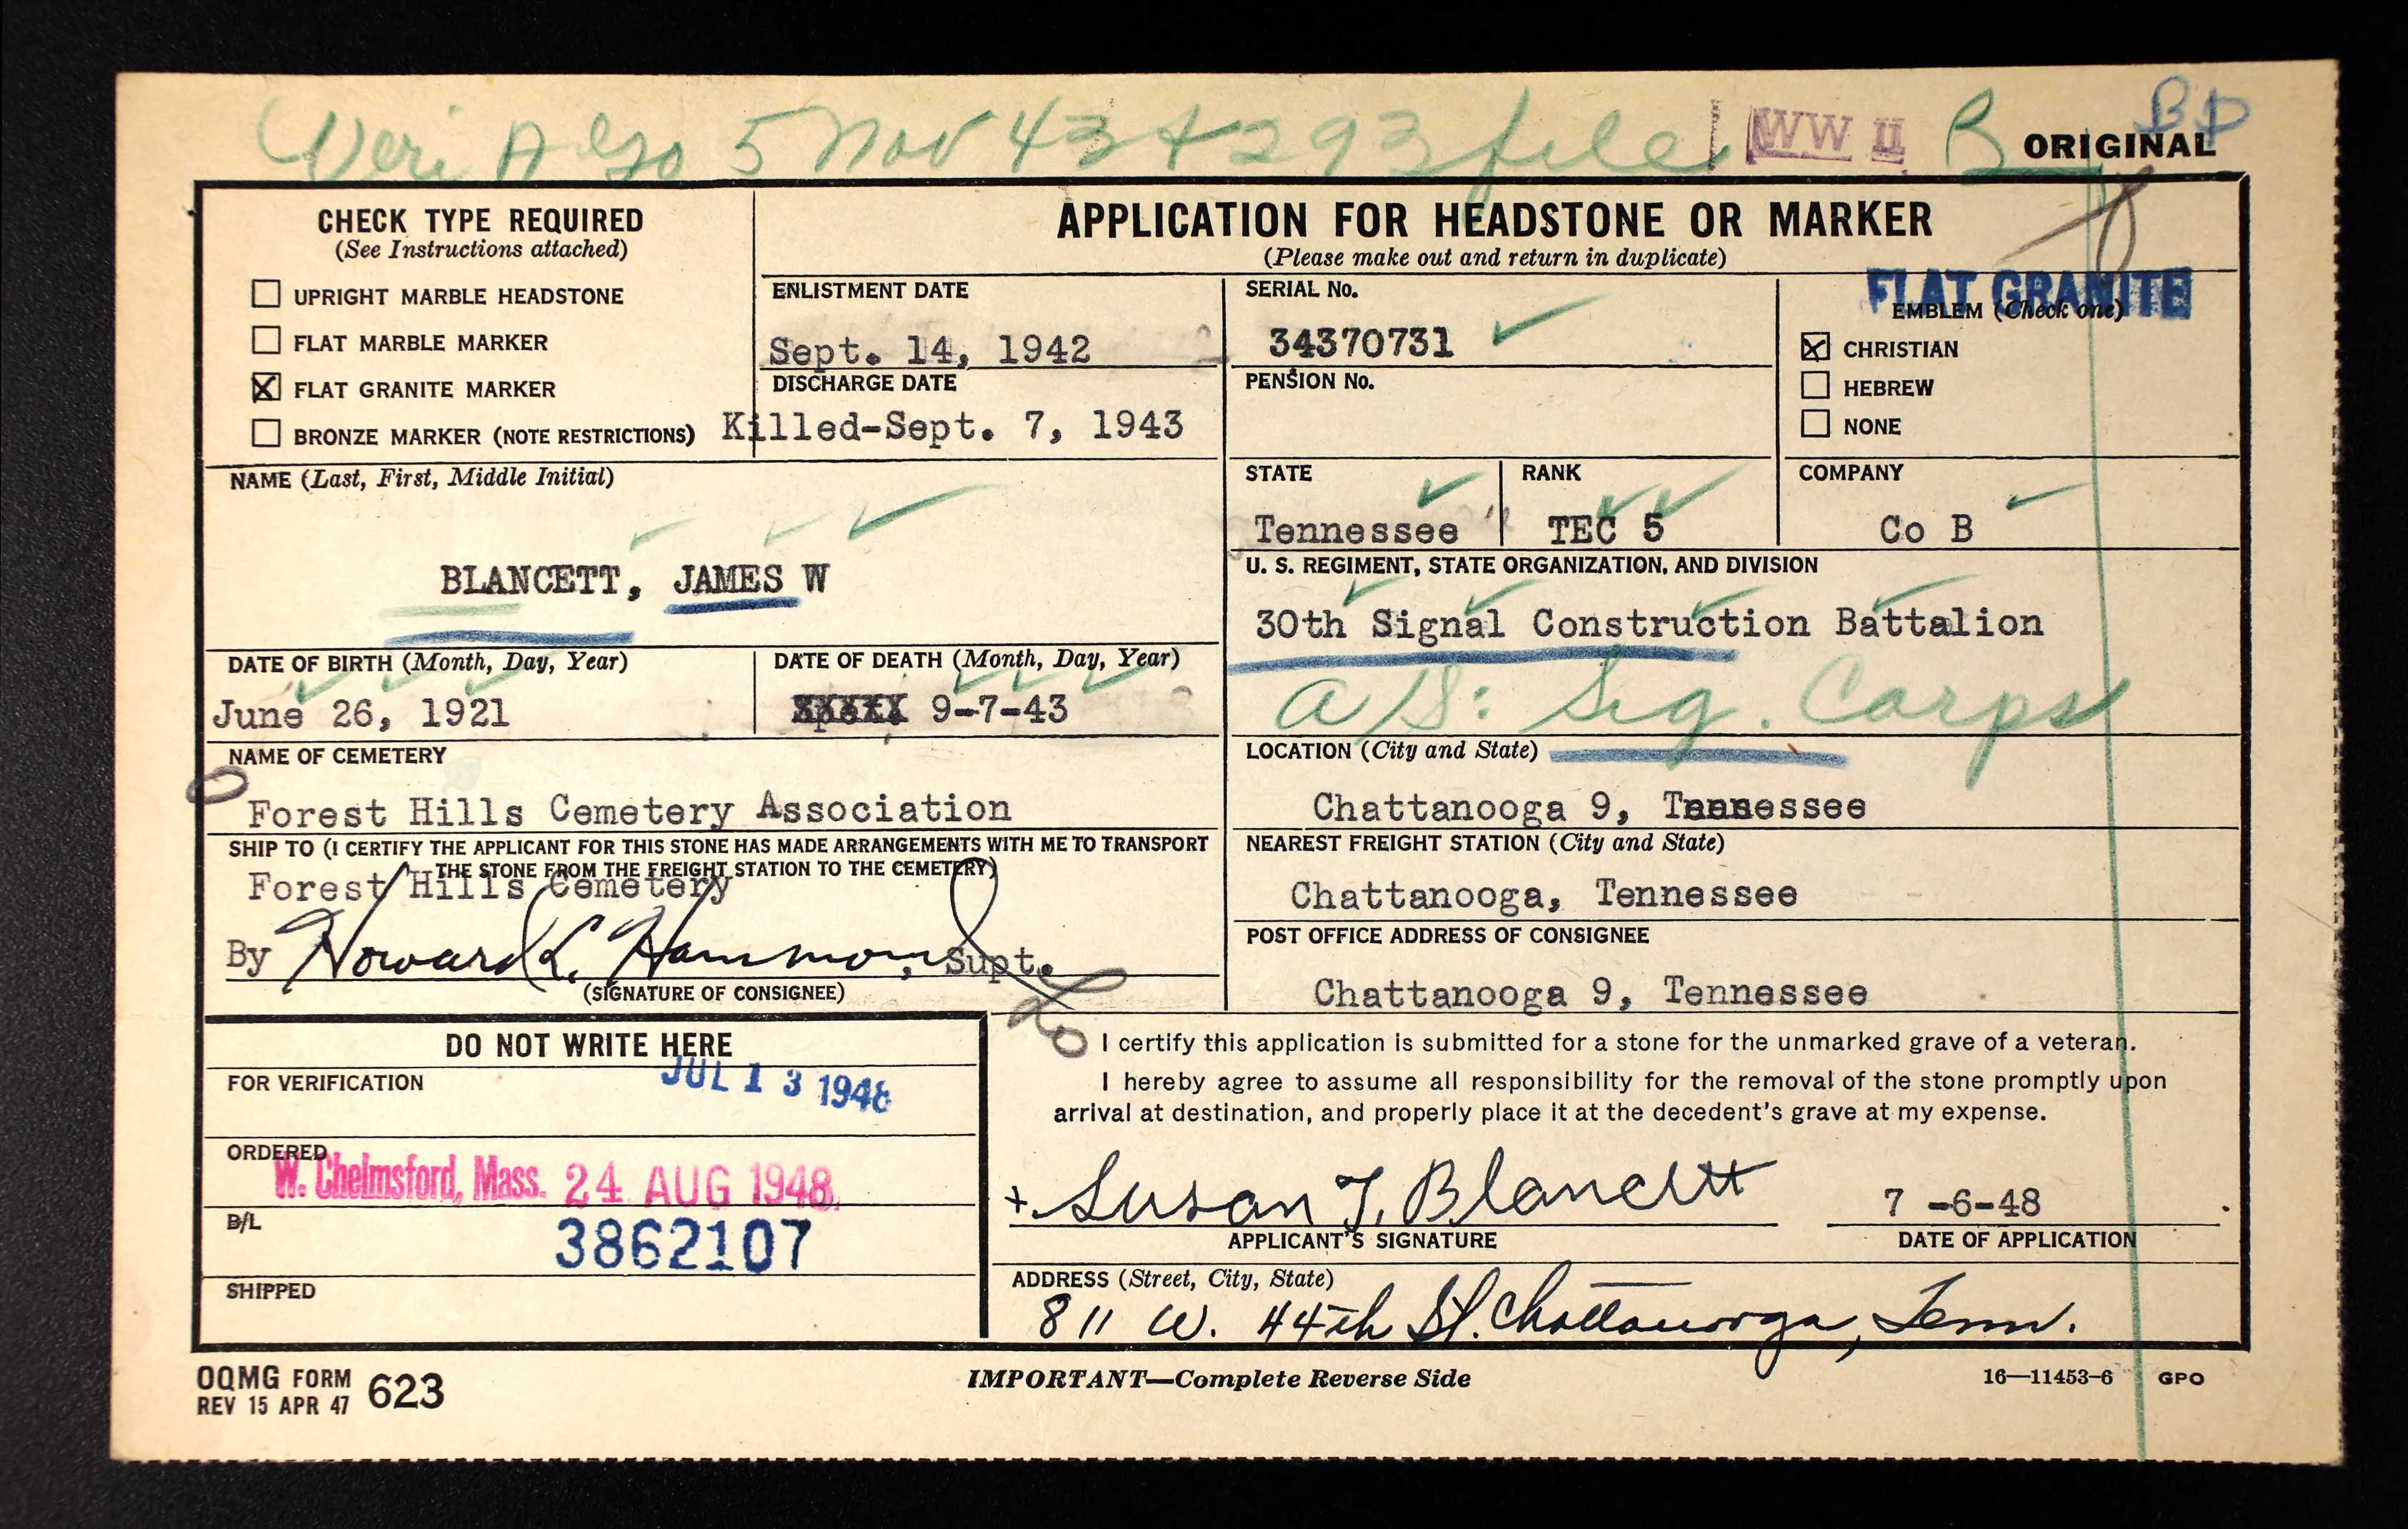 Veri A Go 5 Nov 43 + 293 file WW II B BP
ORIGINAL
CHECK TYPE REQUIRED
(See Instructions attached)
☐ UPRIGHT MARBLE HEADSTONE
☐ FLAT MARBLE MARKER
☒ FLAT GRANITE MARKER
☐ BRONZE MARKER (NOTE RESTRICTIONS)
APPLICATION FOR HEADSTONE OR MARKER
(Please make out and return in duplicate)
ENLISTMENT DATE
Sept. 14, 1942
DISCHARGE DATE
Killed-Sept. 7, 1943
SERIAL No.
34370731
PENSION No.
FLAT GRANITE
EMBLEM (Check one)
☒ CHRISTIAN
☐ HEBREW
☐ NONE
NAME (Last, First, Middle Initial)
BLANCETT, JAMES W
STATE
Tennessee
RANK
TEC 5
COMPANY
Co B
U. S. REGIMENT, STATE ORGANIZATION, AND DIVISION
30th Signal Construction Battalion
A/S: Sig. Corps
DATE OF BIRTH (Month, Day, Year)
June 26, 1921
DATE OF DEATH (Month, Day, Year)
9-7-43
NAME OF CEMETERY
Forest Hills Cemetery Association
LOCATION (City and State)
Chattanooga 9, Tennessee
SHIP TO (I CERTIFY THE APPLICANT FOR THIS STONE HAS MADE ARRANGEMENTS WITH ME TO TRANSPORT
THE STONE FROM THE FREIGHT STATION TO THE CEMETERY)
Forest Hills Cemetery
By Howard L. Hammond, Supt.
(SIGNATURE OF CONSIGNEE)
NEAREST FREIGHT STATION (City and State)
Chattanooga, Tennessee
POST OFFICE ADDRESS OF CONSIGNEE
Chattanooga 9, Tennessee
DO NOT WRITE HERE
FOR VERIFICATION
JUL 13 1948
ORDERED
W. Chelmsford, Mass. 24 AUG 1948
B/L
3862107
SHIPPED
I certify this application is submitted for a stone for the unmarked grave of a veteran.
I hereby agree to assume all responsibility for the removal of the stone promptly upon
arrival at destination, and properly place it at the decedent's grave at my expense.
+ Susan T. Blancett
APPLICANT'S SIGNATURE
7 -6-48
DATE OF APPLICATION
ADDRESS (Street, City, State)
811 W. 44th St. Chattanooga, Tenn.
OQMG FORM 623
REV 15 APR 47
IMPORTANT—Complete Reverse Side
16—11453-6 GPO